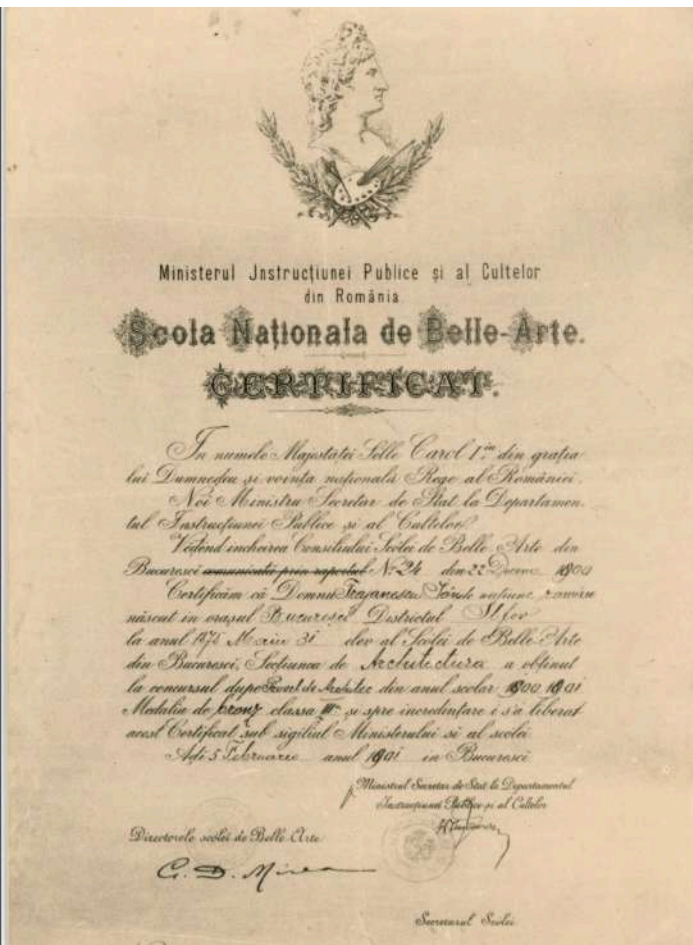 Ministerul Instrucțiunei Publice și al Cultelor
din România
Scola Naționala de Belle-Arte.
CERTIFICAT.
In numele Majestăței Selle Carol I.iu din grația
lui Dumnedeu și voința națională Rege al României.
Noi Ministru Secretar de Stat la Departamen-
tul Instrucțiunei Publice și al Cultelor,
Vĕdend incheirea Consiliului Scolei de Belle-Arte din
Bucuresci comunicată prin raportul No. 24 din 22 1900
Certificăm că Domnu Trajanescu de națiune român
născut in orașul Bucuresci Districtul Ilfov
la anul 1875 Martie 31 elev al Scolei de Belle-Arte
din Bucuresci, Secțiunea de Architectura a obținut
la concursul dupe Proect de Architec din anul scolar 1900 1901
Medalia de bronz classa III și spre incredințare i s'a liberat
acest Certificat sub sigiliul Ministerului si al scolei
Adi 5 Februarie anul 1901 in Bucuresci
Ministrul Secretar de Stat la Departamentul
Instrucțiunei Publice și al Cultelor
Directorele scolei de Belle-Arte
G. D. Mirea
Secretarul Scolei